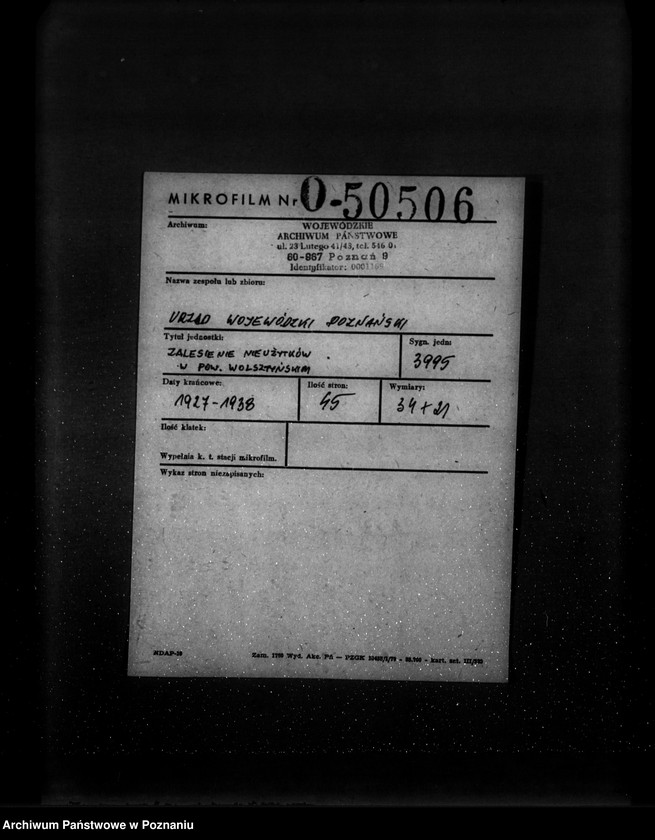 MIKROFILM Nr O-50506
Archiwum:
WOJEWÓDZKIE
ARCHIWUM PAŃSTWOWE
ul. 23 Lutego 41/43, tel. 546 0
60-967 Poznań 9
Identyfikator:
Nazwa zespołu lub zbioru:
URZĄD WOJEWÓDZKI POZNAŃSKI
Tytuł jednostki:
Sygn. jedn:
ZALESIENIE NIEUŻYTKÓW
W POW. WOLSZTYŃSKIM
3995
Daty krańcowe:
Ilość stron:
Wymiary:
1927-1938
45
34 + 21
Ilość klatek:
Wypełnia k. t. stacji mikrofilm.
Wykaz stron niezapisanych:
NDAP-10
Zam. Wyd. Akc. Pń — PZGK
Archiwum Państwowe w Poznaniu